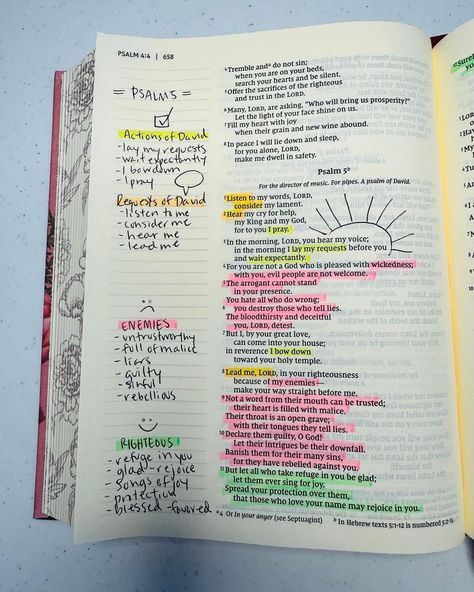 PSALM 4:4 | 658
= PSALM 5 =
Actions of David
- lay my requests
- wait expectantly
- I bow down
- I pray
Requests of David
- listen to me
- consider me
- hear me
- lead me
ENEMIES
- untrustworthy
- full of malice
- liars
- guilty
- sinful
- rebellious
RIGHTEOUS
- refuge in you
- glad - rejoice
- songs of joy
- protection
- blessed - favored
4 Tremble and a do not sin;
when you are on your beds,
search your hearts and be silent.
5 Offer the sacrifices of the righteous
and trust in the LORD.
6 Many, LORD, are asking, “Who will bring us prosperity?”
Let the light of your face shine on us.
7 Fill my heart with joy
when their grain and new wine abound.
8 In peace I will lie down and sleep,
for you alone, LORD,
make me dwell in safety.
Psalm 5 b
For the director of music. For pipes. A psalm of David.
1 Listen to my words, LORD,
consider my lament.
2 Hear my cry for help,
my King and my God,
for to you I pray.
3 In the morning, LORD, you hear my voice;
in the morning I lay my requests before you
and wait expectantly.
4 For you are not a God who is pleased with wickedness;
with you, evil people are not welcome.
5 The arrogant cannot stand
in your presence.
You hate all who do wrong;
6 you destroy those who tell lies.
The bloodthirsty and deceitful
you, LORD, detest.
7 But I, by your great love,
can come into your house;
in reverence I bow down
toward your holy temple.
8 Lead me, LORD, in your righteousness
because of my enemies—
make your way straight before me.
9 Not a word from their mouth can be trusted;
their heart is filled with malice.
Their throat is an open grave;
with their tongues they tell lies.
10 Declare them guilty, O God!
Let their intrigues be their downfall.
Banish them for their many sins,
for they have rebelled against you.
11 But let all who take refuge in you be glad;
let them ever sing for joy.
Spread your protection over them,
that those who love your name may rejoice in you.
a 4 Or In your anger (see Septuagint) b In Hebrew texts 5:1-12 is numbered 5:2-13.